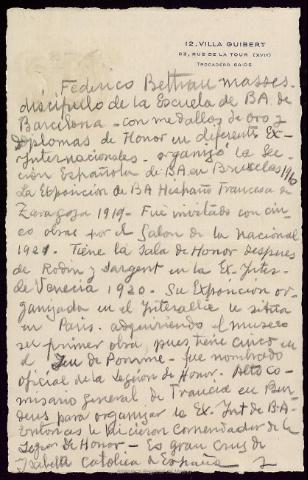 12, VILLA GUIBERT
83, RUE DE LA TOUR (XVIe)
TROCADERO
Federico Beltran Masses.
discipulo de la Escuela de BA. de
Barcelona - con medallas de oro y
Diplomas de Honor en diferentes Ex-
Internacionales - organizó la Sec-
ción Española de BA. en Bruselas 1910
La Exposicion de BA Hispano Francesa en
Zaragoza 1919 - Fue invitado con cin-
co obras por el Salon de la Nacional
1921. Tiene la Sala de Honor despues
de Rodin y Sargent en la Ex. Inter.
de Venecia 1920. Su Exposicion or-
ganizada en el Interallié le situa
en Paris. adquiriendo el museo
su primer obra, pues tiene cinco en
el Jeu de Pomme - fue nombrado
oficial de la Legion de Honor. Alto co-
misario general de Francia en Bur-
deus para organizar la Ex. Int de BA-
Entonces le hicieron Comendador de la
Legion de Honor - Es gran Cruz de
Isabel la Catolica de España